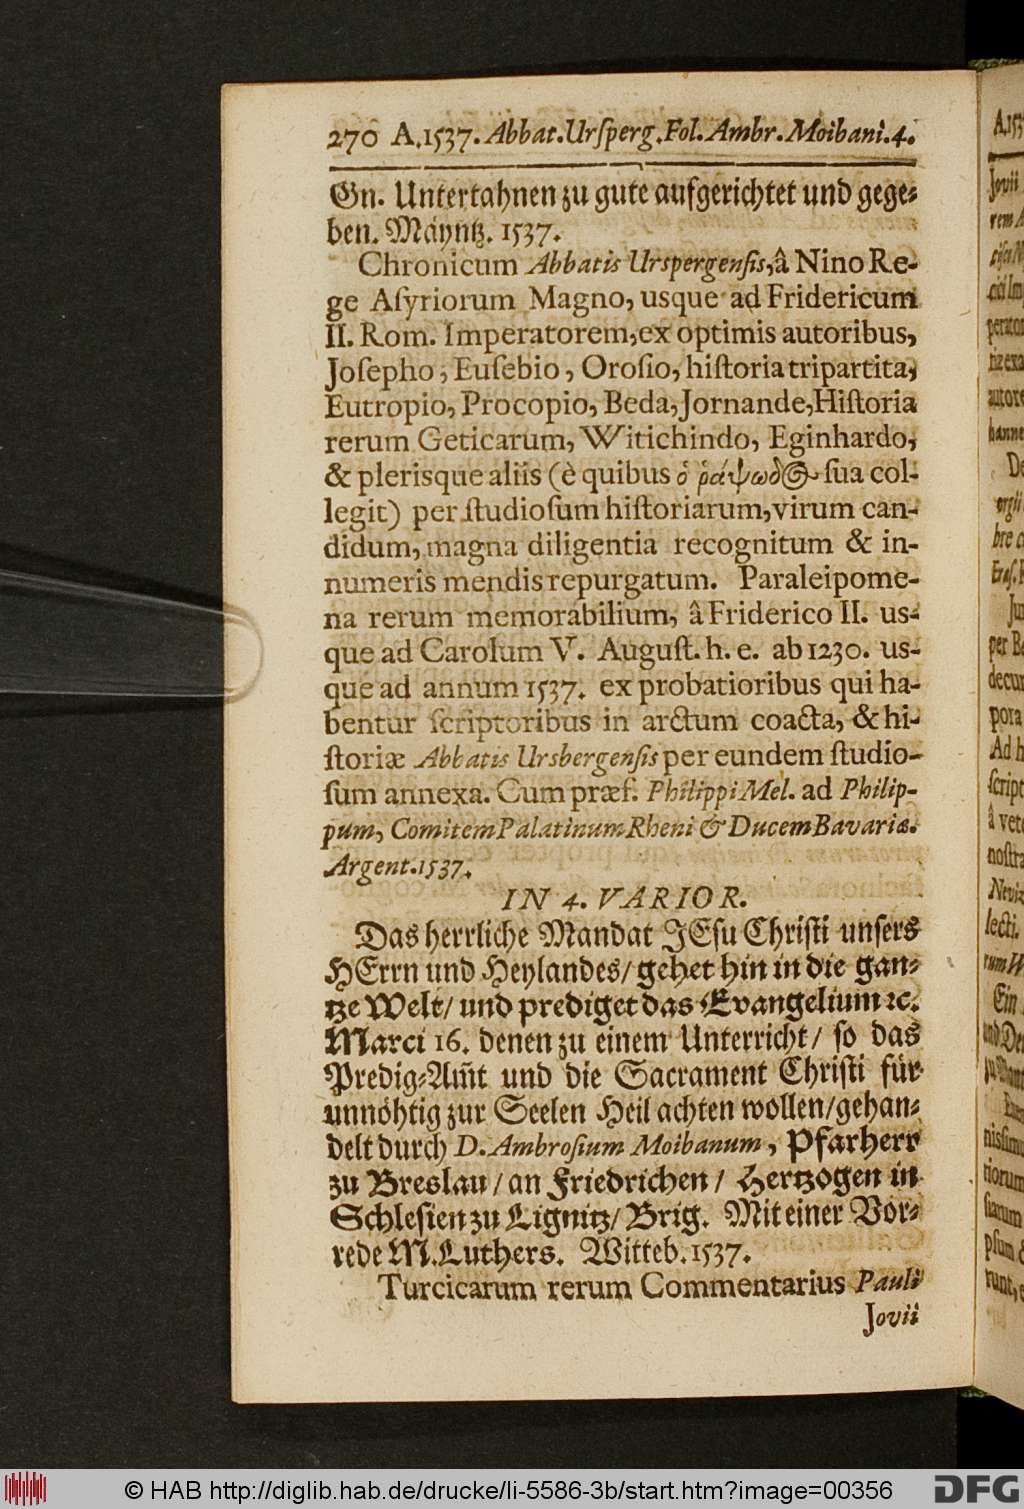 270 A. 1537. Abbat. Urſperg. Fol. Ambr. Moibani. 4.
Gn. Untertahnen zu gute aufgerichtet und gege⸗
ben. Mäyntz. 1537.
Chronicum Abbatis Urspergenſis, â Nino Re-
ge Aſyriorum Magno, usque ad Fridericum
II. Rom. Imperatorem, ex optimis autoribus,
Joſepho, Euſebio, Oroſio, hiſtoria tripartita,
Eutropio, Procopio, Beda, Jornande, Hiſtoria
rerum Geticarum, Witichindo, Eginhardo,
& plerisque aliis (è quibus ὁ ῥάψωδος sua col-
legit) per ſtudioſum hiſtoriarum, virum can-
didum, magna diligentia recognitum & in-
numeris mendis repurgatum. Paraleipome-
na rerum memorabilium, â Friderico II. us-
que ad Carolum V. Auguſt. h. e. ab 1230. us-
que ad annum 1537. ex probatioribus qui ha-
bentur ſcriptoribus in arctum coacta, & hi-
ſtoriæ Abbatis Ursbergenſis per eundem ſtudio-
ſum annexa. Cum præf. Philippi Mel. ad Philip-
pum, Comitem Palatinum Rheni & Ducem Bavariæ.
Argent. 1537.
IN 4. VARIOR.
Das herrliche Mandat JEſu Chriſti unſers
HErrn und Heylandes/ gehet hin in die gan⸗
tze Welt/ und prediget das Evangelium ꝛc.
Marci 16. denen zu einem Unterricht/ ſo das
Predig⸗Am̃t und die Sacrament Chriſti für
unnöhtig zur Seelen Heil achten wollen/ gehan⸗
delt durch D. Ambroſium Moibanum, Pfarherr
zu Breslau/ an Friedrichen/ Hertzogen in
Schleſien zu Lignitz/ Brig. Mit einer Vor⸗
rede M. Luthers. Witteb. 1537.
Turcicarum rerum Commentarius Pauli
Jovii
© HAB http://diglib.hab.de/drucke/li-5586-3b/start.htm?image=00356
DFG